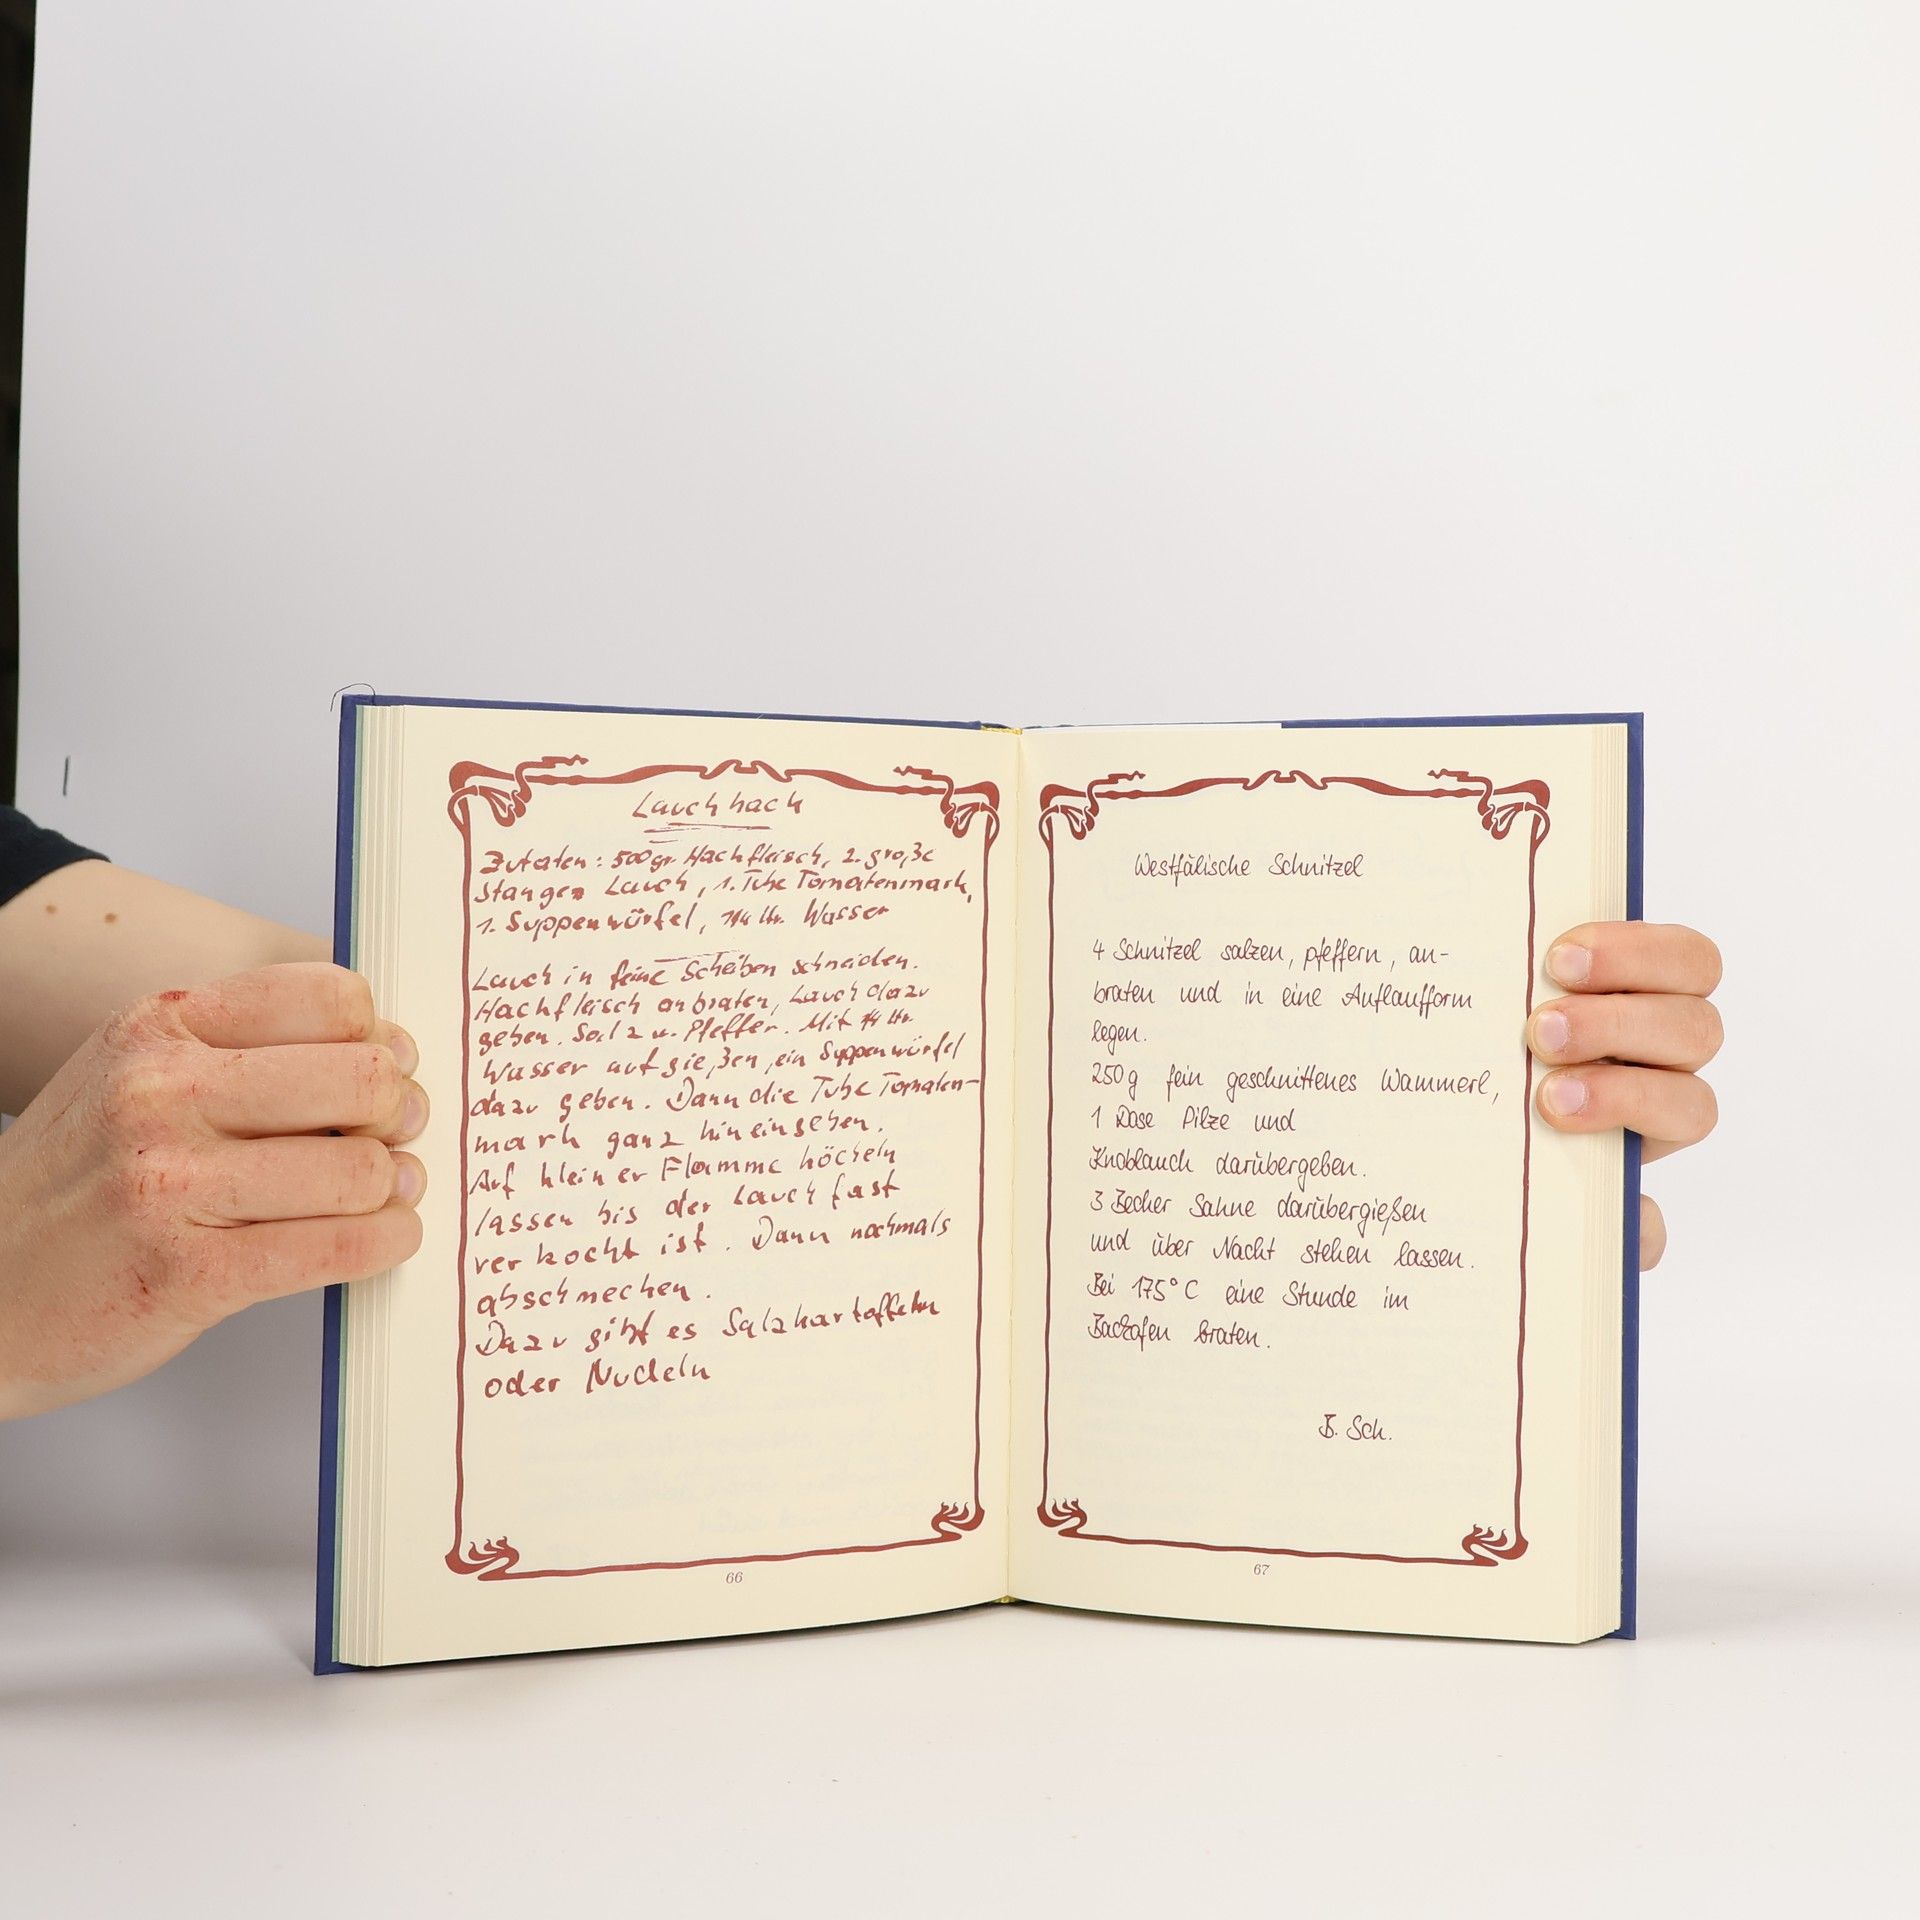 Lauchhack
Zutaten: 500gr Hackfleisch, 2. große
Stangen Lauch, 1. Tube Tomatenmark,
1. Suppenwürfel, 1/4 ltr. Wasser
Lauch in feine Scheiben schneiden.
Hackfleisch anbraten, Lauch dazu
geben. Salz u. Pfeffer. Mit 1/4 ltr.
Wasser aufgießen, ein Suppenwürfel
dazu geben. Dann die Tube Tomaten-
mark ganz hineingeben.
Auf kleiner Flamme köcheln
lassen bis der Lauch fast
verkocht ist. Dann nochmals
abschmecken.
Dazu gibt es Salzkartoffeln
oder Nudeln
66
Westfälische Schnitzel
4 Schnitzel salzen, pfeffern, an-
braten und in eine Auflaufform
legen.
250g fein geschnittenes Wammerl,
1 Dose Pilze und
Knoblauch darübergeben.
3 Becher Sahne darübergießen
und über Nacht stehen lassen.
Bei 175°C eine Stunde im
Backofen braten.
B. Sch.
67